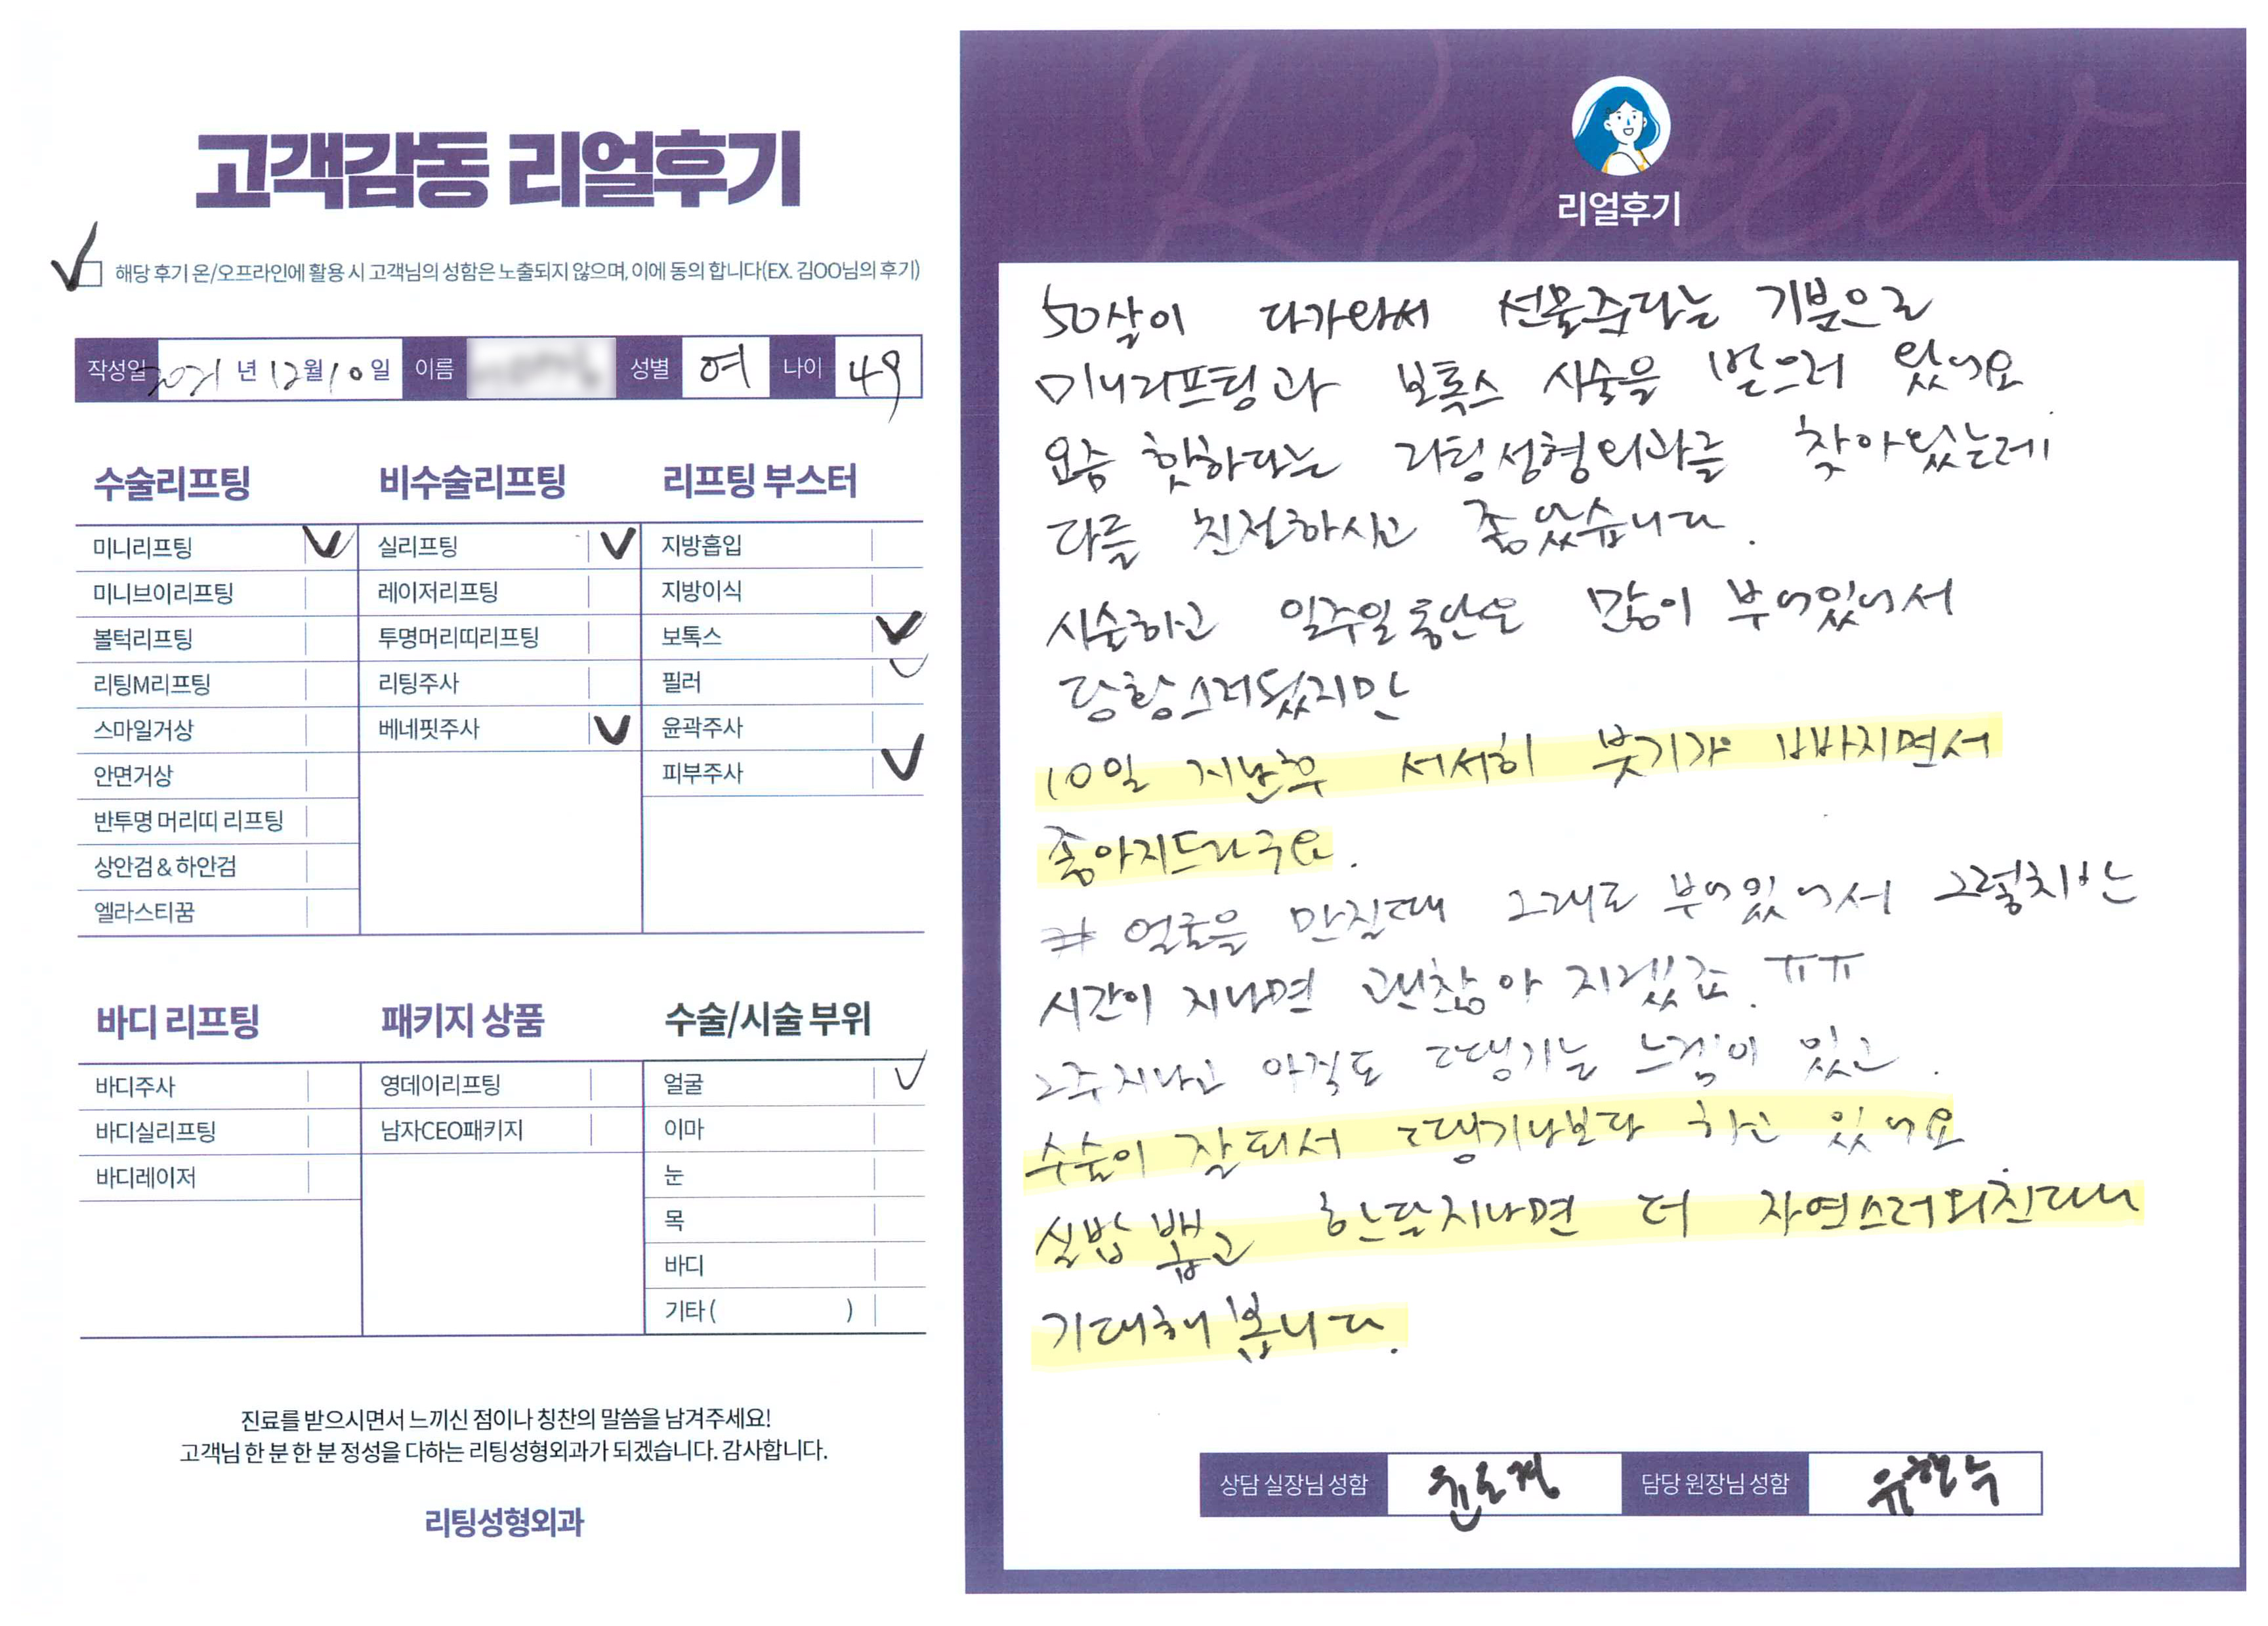 고객감동 리얼후기
해당 후기 온/오프라인에 활용 시 고객님의 성함은 노출되지 않으며, 이에 동의 합니다(EX. 김OO님의 후기)
작성일 2021년 12월 10일 이름 성별 여 나이 49
수술리프팅
미니리프팅 V
미니브이리프팅
볼턱리프팅
리팅M리프팅
스마일거상
안면거상
반투명 머리띠 리프팅
상안검 & 하안검
엘라스티꿈
비수술리프팅
실리프팅 V
레이저리프팅
투명머리띠리프팅
리팅주사
베네핏주사 V
리프팅 부스터
지방흡입
지방이식
보톡스 V
필러
윤곽주사
피부주사 V
바디 리프팅
바디주사
바디실리프팅
바디레이저
패키지 상품
영데이리프팅
남자CEO패키지
수술/시술 부위
얼굴 V
이마
눈
목
바디
기타 ( )
진료를 받으시면서 느끼신 점이나 칭찬의 말씀을 남겨주세요!
고객님 한 분 한 분 정성을 다하는 리팅성형외과가 되겠습니다. 감사합니다.
리팅성형외과
Review
리얼후기
50살이 다가와서 선물준다는 기분으로
미니리프팅과 보톡스 시술을 받으러 왔어요
요즘 핫하다는 리팅성형외과를 찾아왔는데
다들 친절하시고 좋았습니다.
시술하고 일주일동안은 많이 부어있어서
당황스러웠지만
10일 지난후 서서히 붓기가 빠지면서
좋아지드라구요.
# 얼굴을 만질때 그대로 부어있어서 그렇치만
시간이 지나면 괜찮아 지겠죠. ㅠㅠ
2주지나고 아직도 땡기는 느낌이 있고.
수술이 잘되서 땡기나보다 하고 있어요
실밥 뽑고 한달지나면 더 자연스러워진다니
기대해 봅니다.
상담 실장님 성함 담당 원장님 성함